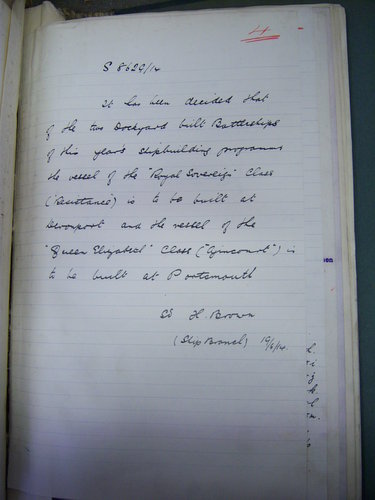 4
S 8629/14
It has been decided that
of the two Dockyard built Battleships
of this year's shipbuilding programme
the vessel of the "Royal Sovereign" Class
("Resistance") is to be built at
Devonport and the vessel of the
"Queen Elizabeth" Class ("Agincourt") is
to be built at Portsmouth
Sd H. Brown
(Ship Branch) 19/6/14